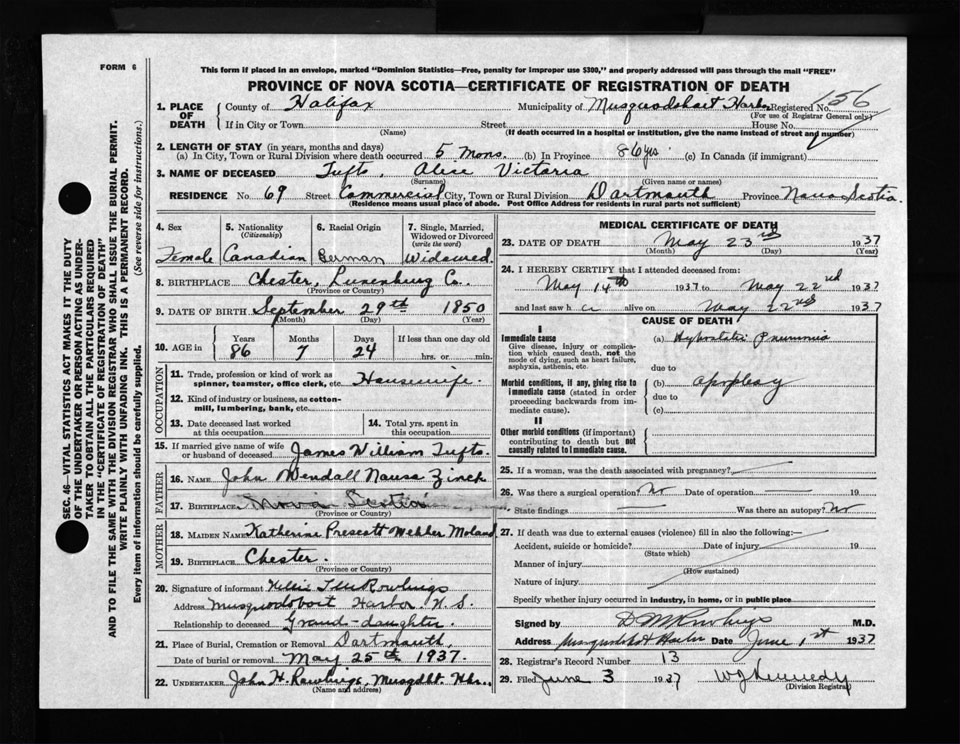 FORM 6
This form if placed in an envelope, marked "Dominion Statistics—Free, penalty for improper use $300," and properly addressed will pass through the mail "FREE"
PROVINCE OF NOVA SCOTIA—CERTIFICATE OF REGISTRATION OF DEATH
SEC. 46—VITAL STATISTICS ACT MAKES IT THE DUTY
OF THE UNDERTAKER OR PERSON ACTING AS UNDER-
TAKER TO OBTAIN ALL THE PARTICULARS REQUIRED
IN THE "CERTIFICATE OF REGISTRATION OF DEATH"
AND TO FILE THE SAME WITH THE DIVISION REGISTRAR WHO SHALL ISSUE THE BURIAL PERMIT.
WRITE PLAINLY WITH UNFADING INK. THIS IS A PERMANENT RECORD.
Every item of information should be carefully supplied. (See reverse side for instructions.)
1. PLACE OF DEATH County of Halifax Municipality of Musquodoboit Harb. Registered No. 156
(For use of Registrar General only)
If in City or Town Street House No.
(Name) (If death occurred in a hospital or institution, give the name instead of street and number)
2. LENGTH OF STAY (in years, months and days)
(a) In City, Town or Rural Division where death occurred 5 mons. (b) In Province 86 yrs (c) In Canada (if immigrant)
3. NAME OF DECEASED Tufts, Alice Victoria
(Surname) (Given name or names)
RESIDENCE No. 69 Street Commercial City, Town or Rural Division Dartmouth Province Nova Scotia.
(Residence means usual place of abode. Post Office Address for residents in rural parts not sufficient)
4. Sex 5. Nationality (Citizenship) 6. Racial Origin 7. Single, Married, Widowed or Divorced (write the word)
Female Canadian German Widowed.
8. BIRTHPLACE Chester, Lunenburg Co.
(Province or Country)
9. DATE OF BIRTH September 29th 1850
(Month) (Day) (Year)
10. AGE in Years Months Days If less than one day old
86 7 24 hrs. or min.
OCCUPATION
11. Trade, profession or kind of work as spinner, teamster, office clerk, etc. Housewife.
12. Kind of industry or business, as cotton-mill, lumbering, bank, etc.
13. Date deceased last worked at this occupation 14. Total yrs. spent in this occupation
15. If married give name of wife or husband of deceased James William Tufts.
FATHER
16. NAME John Wendall Zinck
17. BIRTHPLACE Nova Scotia
(Province or Country)
MOTHER
18. MAIDEN NAME Katherine Prescott
19. BIRTHPLACE Chester.
(Province or Country)
20. Signature of informant Rowlings
Address Musquodoboit Harbor, N.S.
Relationship to deceased Grand-daughter.
21. Place of Burial, Cremation or Removal Dartmouth,
Date of burial or removal May 25th 1937.
22. UNDERTAKER John H. Rowlings, Musqdbt. Hbr.,
(Name and address)
MEDICAL CERTIFICATE OF DEATH
23. DATE OF DEATH May 23rd 1937
(Month) (Day) (Year)
24. I HEREBY CERTIFY that I attended deceased from:
May 14th 1937 to May 22nd 1937
and last saw h er alive on May 22nd 1937
CAUSE OF DEATH
I
Immediate cause
Give disease, injury or complication which caused death, not the mode of dying, such as heart failure, asphyxia, asthenia, etc.
(a) Hypostatic Pneumonia
due to
Morbid conditions, if any, giving rise to immediate cause (stated in order proceeding backwards from immediate cause).
(b) apoplexy
due to
(c)
II
Other morbid conditions (if important) contributing to death but not causally related to immediate cause.
25. If a woman, was the death associated with pregnancy?
26. Was there a surgical operation? No Date of operation 19
State findings Was there an autopsy? No
27. If death was due to external causes (violence) fill in also the following:—
Accident, suicide or homicide? Date of injury 19
(State which)
Manner of injury
(How sustained)
Nature of injury
Specify whether injury occurred in industry, in home, or in public place
Signed by Rowlings M.D.
Address Musquodoboit Harbor Date June 1st 1937
28. Registrar's Record Number 13
29. Filed June 3 1937 W J Kennedy
(Division Registrar)